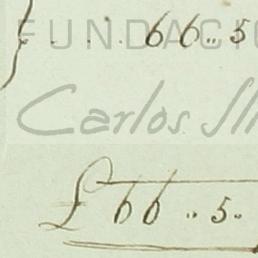 FUNDACIÓ
} . . . 66.. 5
Carlos Sli
£ 66 .. 5.